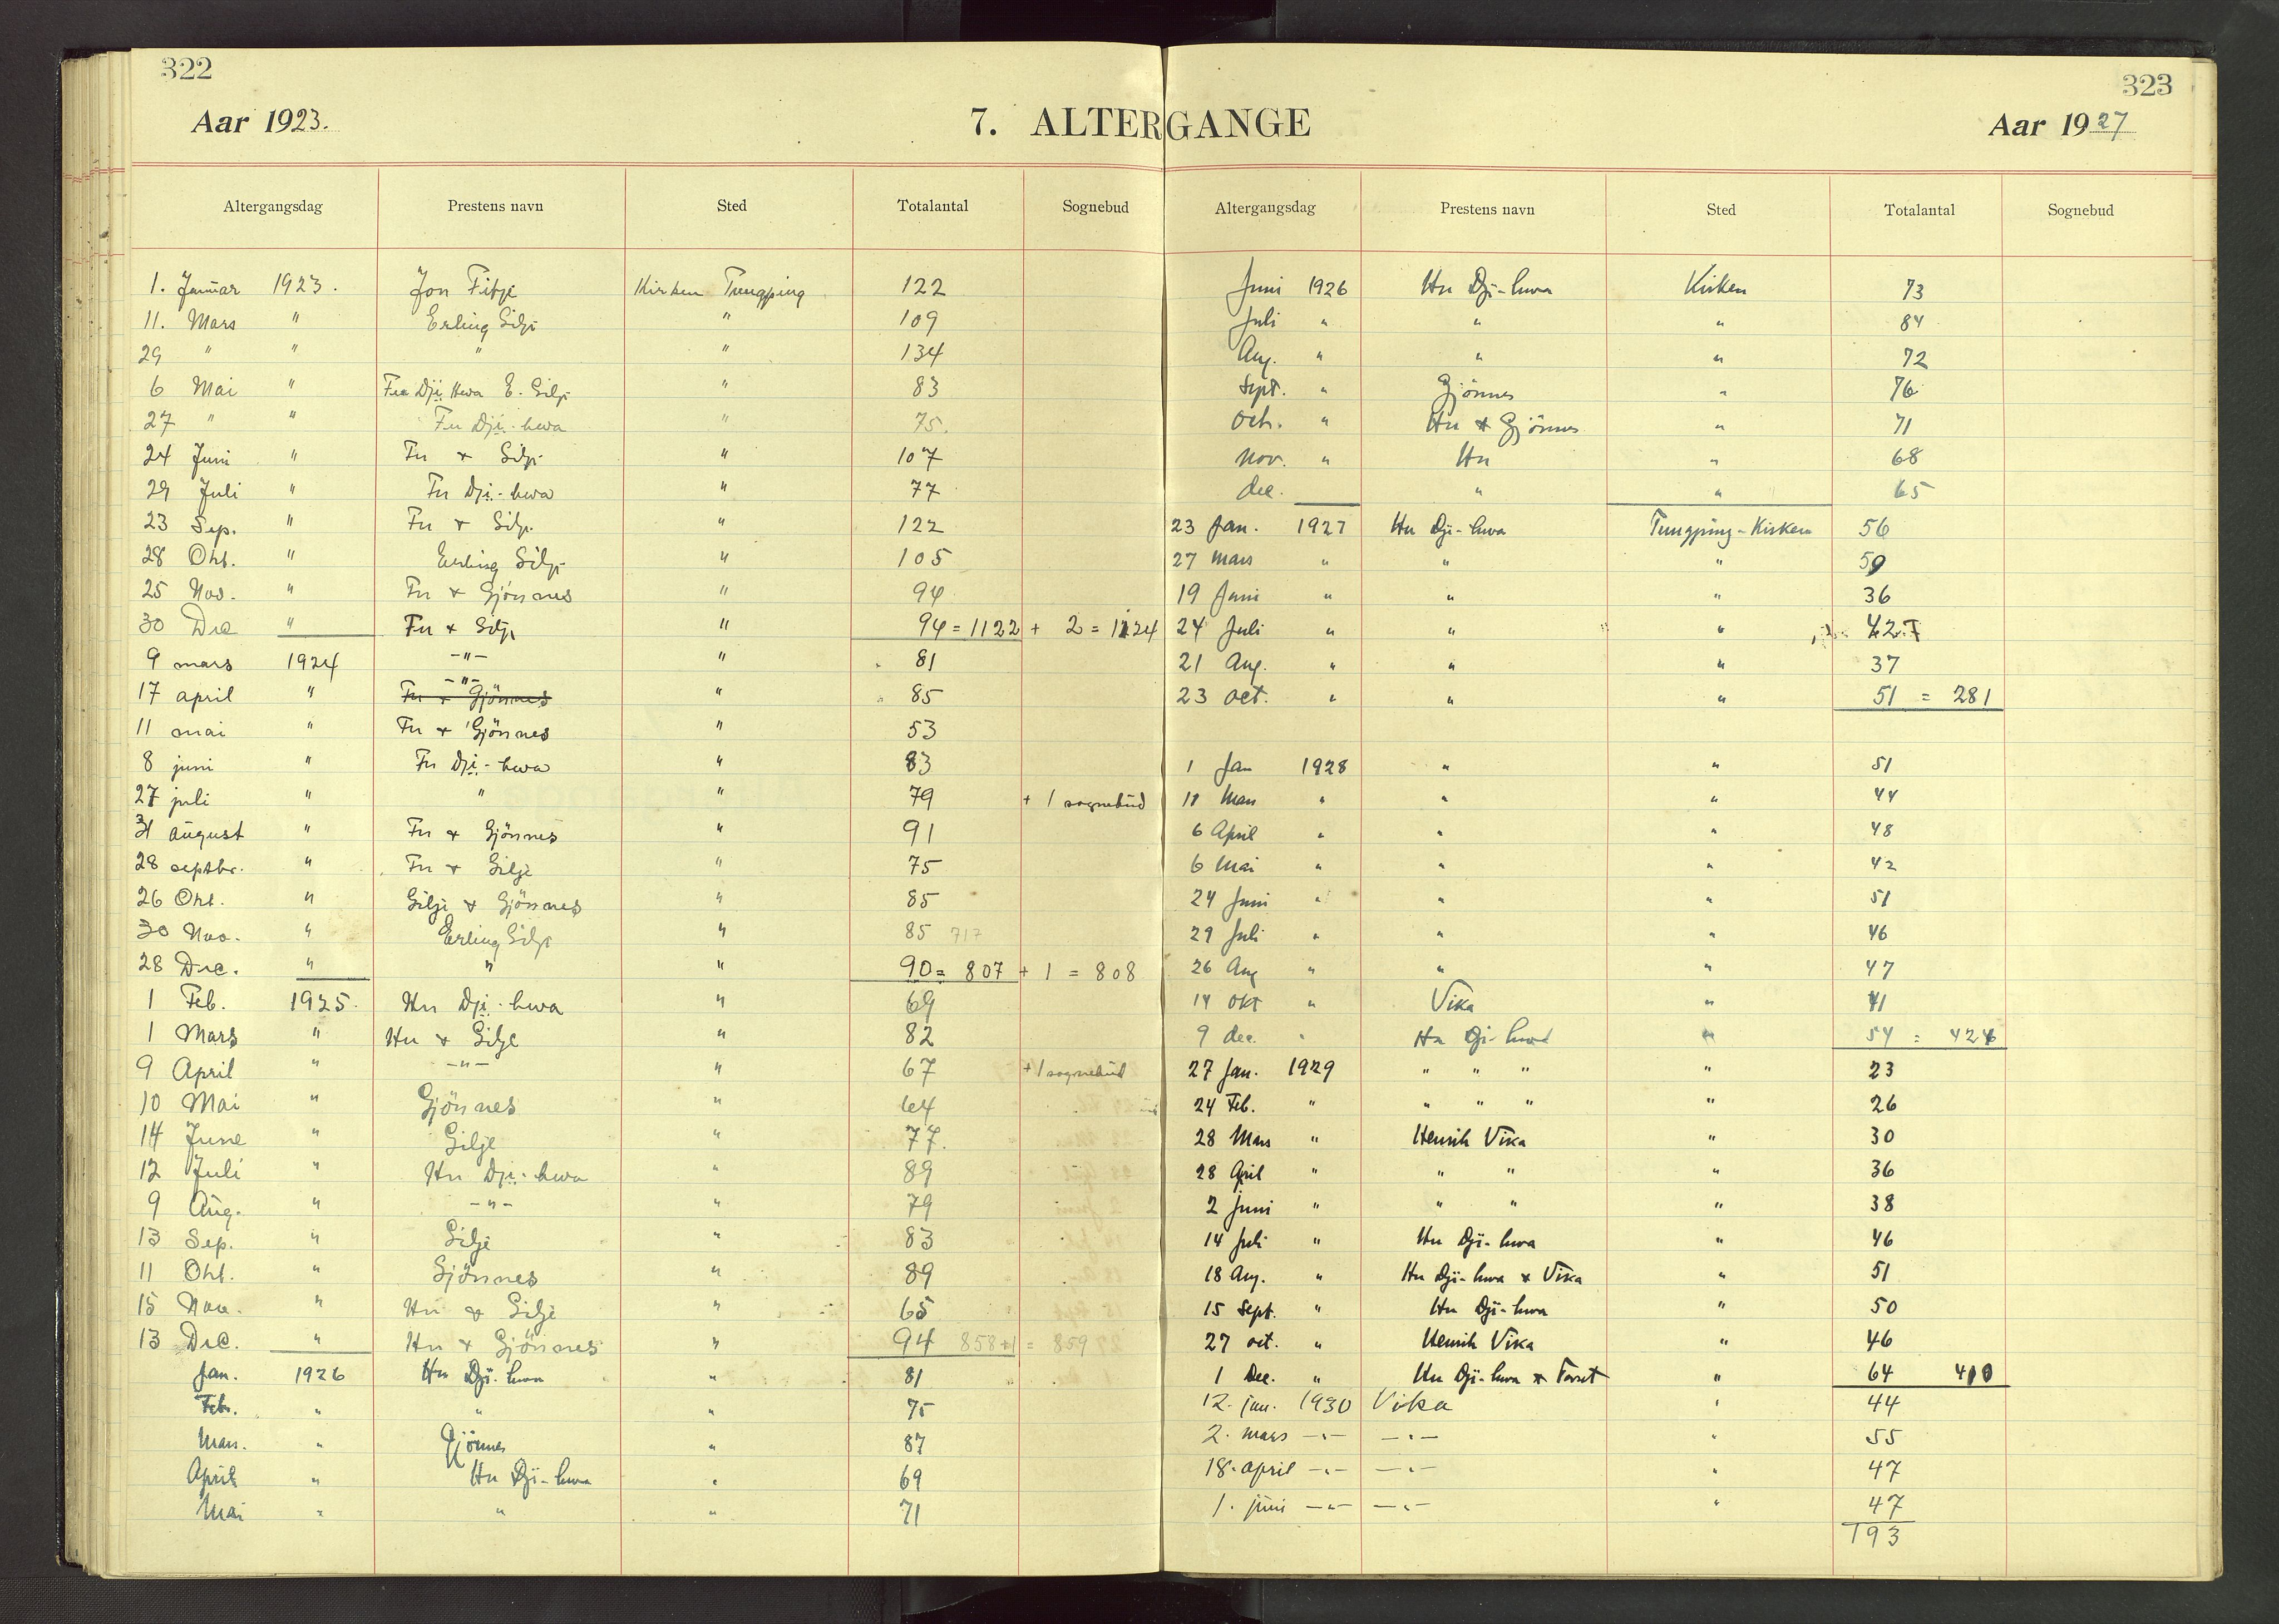 322
Aar 1923.
7. ALTERGANGE
Altergangsdag Prestens navn Sted Totalantal Sognebud
1. Januar 1923. Jon Fitje Kirken Tungping 122
11. Mars " Erling Gilje " 109
29 " " " " 134
6 Mai " Fu Dji Hwa E. Gilje " 83
27 " " Fu Dji-hwa " 75.
24 Juni " Fu + Gilje " 107
29 Juli " Fu Dji-hwa " 77
23 Sep. " Fu + Gilje " 122
28 Okt. " Erling Gilje " 105
25 Nov. " Fu + Gjönnes " 94
30 Dec " Fu + Gilje " 94 = 1122 + 2 = 1124
9 mars 1924 -"- " 81
17 april " -"- Fu + Gjönnes " 85
11 mai " Fu + Gjönnes " 53
8 juni " Fu Dji-hwa " 83
27 juli " " " 79 + 1 sognebud
31 august " Fu + Gjönnes " 91
28 septbr. " Fu + Gilje " 75
26 Okt. " Gilje + Gjönnes " 85
30 Nov. " Erling Gilje " 85 717
28 Dec. " " " 90 = 807 + 1 = 808
1 Feb. 1925. Hu Dji-hwa " 69
1 Mars " Hu + Gilje " 82
9 April " -"- " 67 + 1 sognebud
10 Mai " Gjönnes " 64
14 June " Gilje " 77.
12 Juli " Hu Dji-hwa " 89
9 Aug. " -"- " 79
13 Sep. " Gilje " 83
11 Okt. " Gjönnes " 89
15 Nov. " Hu & Gilje " 65
13 Dec. " Hu + Gjönnes " 94 858+1 = 859
Jan. 1926 Hu Dji-hwa " 81
Feb. " " " 75
Mars. " Gjönnes " 87
April " Hu Dji-hwa " 69
Mai " " " 71
323
Aar 1927
Altergangsdag Prestens navn Sted Totalantal Sognebud
Juni 1926 Hu Dji-hwa Kirken 73
Juli " " " 84
Aug. " " " 72
Sept. " Gjönnes " 76
Octr. " Hu + Gjönnes " 71
Nov. " Hu " 68
dec. " " 65
23 Jan. 1927 Hu Dji-hwa Tungping-Kirken 56
27 mars " " " 59
19 Juni " " " 36
24 Juli " " " 42
21 Aug. " " " 37
23 oct. " " " 51 = 281
1 Jan 1928 " " 51
11 Mars " " " 44
6 April " " " 48
6 Mai " " " 42
24 Juni " " " 51
29 Juli " " " 46
26 Aug " " " 47
14 okt " Vika " 41
9 dec. " Hu Dji-hwa " 54 = 424
27 Jan. 1929 " " " " 23
24 Feb. " " " " " 26
28 Mars " Henrik Vika " 30
28 April " " " " 36
2 juni " " " " 38
14 Juli " Hu Dji-hwa " 46
18 Aug. " Hu Dji-hwa & Vika " 51
15 Sept. " Hu Dji-hwa " 50
27 oct. " Henrik Vika " 46
1 Dec. " Hu Dji-hwa & " 64 410
12. jan. 1930 Vika " 44
2. mars -"- -"- " 55
18. april -"- -"- " 47
1. juni -"- -"- " 47
193